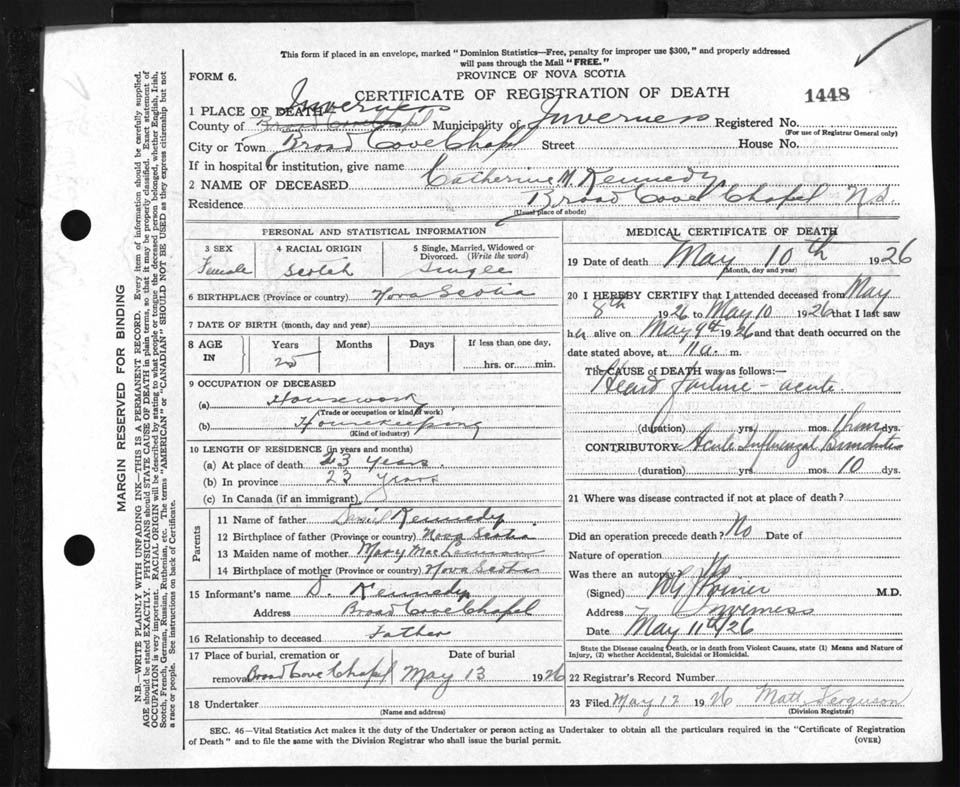 This form if placed in an envelope, marked "Dominion Statistics—Free, penalty for improper use $300," and properly addressed
will pass through the Mail "FREE."
FORM 6.
PROVINCE OF NOVA SCOTIA
CERTIFICATE OF REGISTRATION OF DEATH
1448
1 PLACE OF DEATH Inverness
County of Broad Cove Chapel Municipality of Inverness Registered No.
(For use of Registrar General only)
City or Town Broad Cove Chapel Street House No.
If in hospital or institution, give name
2 NAME OF DECEASED Catherine M. Kennedy
Residence Broad Cove Chapel N.S.
(Usual place of abode)
PERSONAL AND STATISTICAL INFORMATION
3 SEX Female
4 RACIAL ORIGIN Scotch
5 Single, Married, Widowed or Divorced. (Write the word) Single
6 BIRTHPLACE (Province or country) Nova Scotia
7 DATE OF BIRTH (month, day and year)
8 AGE IN Years Months Days If less than one day,
25 hrs. or min.
9 OCCUPATION OF DECEASED
(a) Housework
(Trade or occupation or kind of work)
(b) Housekeeping
(Kind of industry)
10 LENGTH OF RESIDENCE (in years and months)
(a) At place of death 23 years.
(b) In province 23 years
(c) In Canada (if an immigrant)
Parents
11 Name of father Daniel Kennedy
12 Birthplace of father (Province or country) Nova Scotia
13 Maiden name of mother Mary MacLennan
14 Birthplace of mother (Province or country) Nova Scotia
15 Informant's name D. Kennedy
Address Broad Cove Chapel
16 Relationship to deceased Father
17 Place of burial, cremation or removal Date of burial
Broad Cove Chapel May 13 1926
18 Undertaker
(Name and address)
MEDICAL CERTIFICATE OF DEATH
19 Date of death May 10th 1926
(Month, day and year)
20 I HEREBY CERTIFY that I attended deceased from May
8th 1926 to May 10 1926 that I last saw
her alive on May 9th 1926 and that death occurred on
date stated above, at 11 a. m.
The CAUSE OF DEATH was as follows:—
Heard failure - acute.
(duration) yrs. mos.
CONTRIBUTORY Acute Influenzal
(duration) yrs. mos. 10 dys.
21 Where was disease contracted if not at place of death?
Did an operation precede death? No Date of
Nature of operation
Was there an autopsy? No
(Signed) M.D.
Address Inverness
Date May 11th/26
State the Disease causing Death, or in death from Violent Causes, state (1) Means and Nature of
Injury, (2) whether Accidental, Suicidal or Homicidal.
22 Registrar's Record Number
23 Filed May 12 1926 Matt Ferguson
(Division Registrar)
SEC. 46—Vital Statistics Act makes it the duty of the Undertaker or person acting as Undertaker to obtain all the particulars required in the "Certificate of Registration
of Death" and to file the same with the Division Registrar who shall issue the burial permit.
(OVER)
MARGIN RESERVED FOR BINDING
N.B.—WRITE PLAINLY WITH UNFADING INK—THIS IS A PERMANENT RECORD. Every item of information should be carefully supplied.
AGE should be stated EXACTLY. PHYSICIANS should STATE CAUSE OF DEATH in plain terms, so that it may be properly classified. Exact statement of
OCCUPATION is very important. RACIAL ORIGIN will be described by stating to what people or tongue the deceased person belonged, whether English, Irish,
Scotch, French, German, Russian, Ruthenian, etc. The terms "AMERICAN" or "CANADIAN" SHOULD NOT BE USED as they express citizenship but not
a race or people. See instructions on back of Certificate.